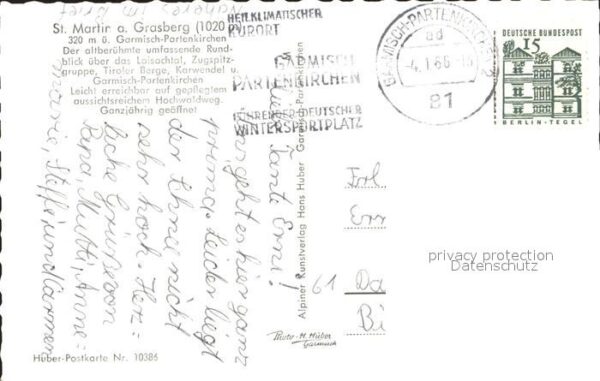 St. Martin a. Grasberg (1020
320 m ü. Garmisch-Partenkirchen
Der altberühmte umfassende Rund-
blick über das Loisachtal, Zugspitz-
gruppe, Tiroler Berge, Karwendel u.
Garmisch-Partenkirchen
Leicht erreichbar auf gepflegtem
aussichtsreichem Hochwaldweg.
Ganzjährig geöffnet
Näheres im Brief
HEILKLIMATISCHER
KURORT
GARMISCH
PARTENKIRCHEN
FÜHRENDER DEUTSCHER
WINTERSPORTPLATZ
GARMISCH-PARTENKIRCHEN 2
ad
-4.1.66-15
81
DEUTSCHE BUNDESPOST
15
BERLIN-TEGEL
Liebe Tante Erni!
Uns geht es hier ganz
prima. Leider liegt
der Schnee nicht
sehr hoch. Herz-
liche Grüße von
Papa, Mutti, Anne-
marie, Steffi und Carmen
Alpiner Kunstverlag Hans Huber Garmisch-Partenkirchen
Frl.
Err
61 Da
Bi
Photo-H. Huber
Garmisch
Huber-Postkarte Nr. 10386
privacy protection
Datenschutz